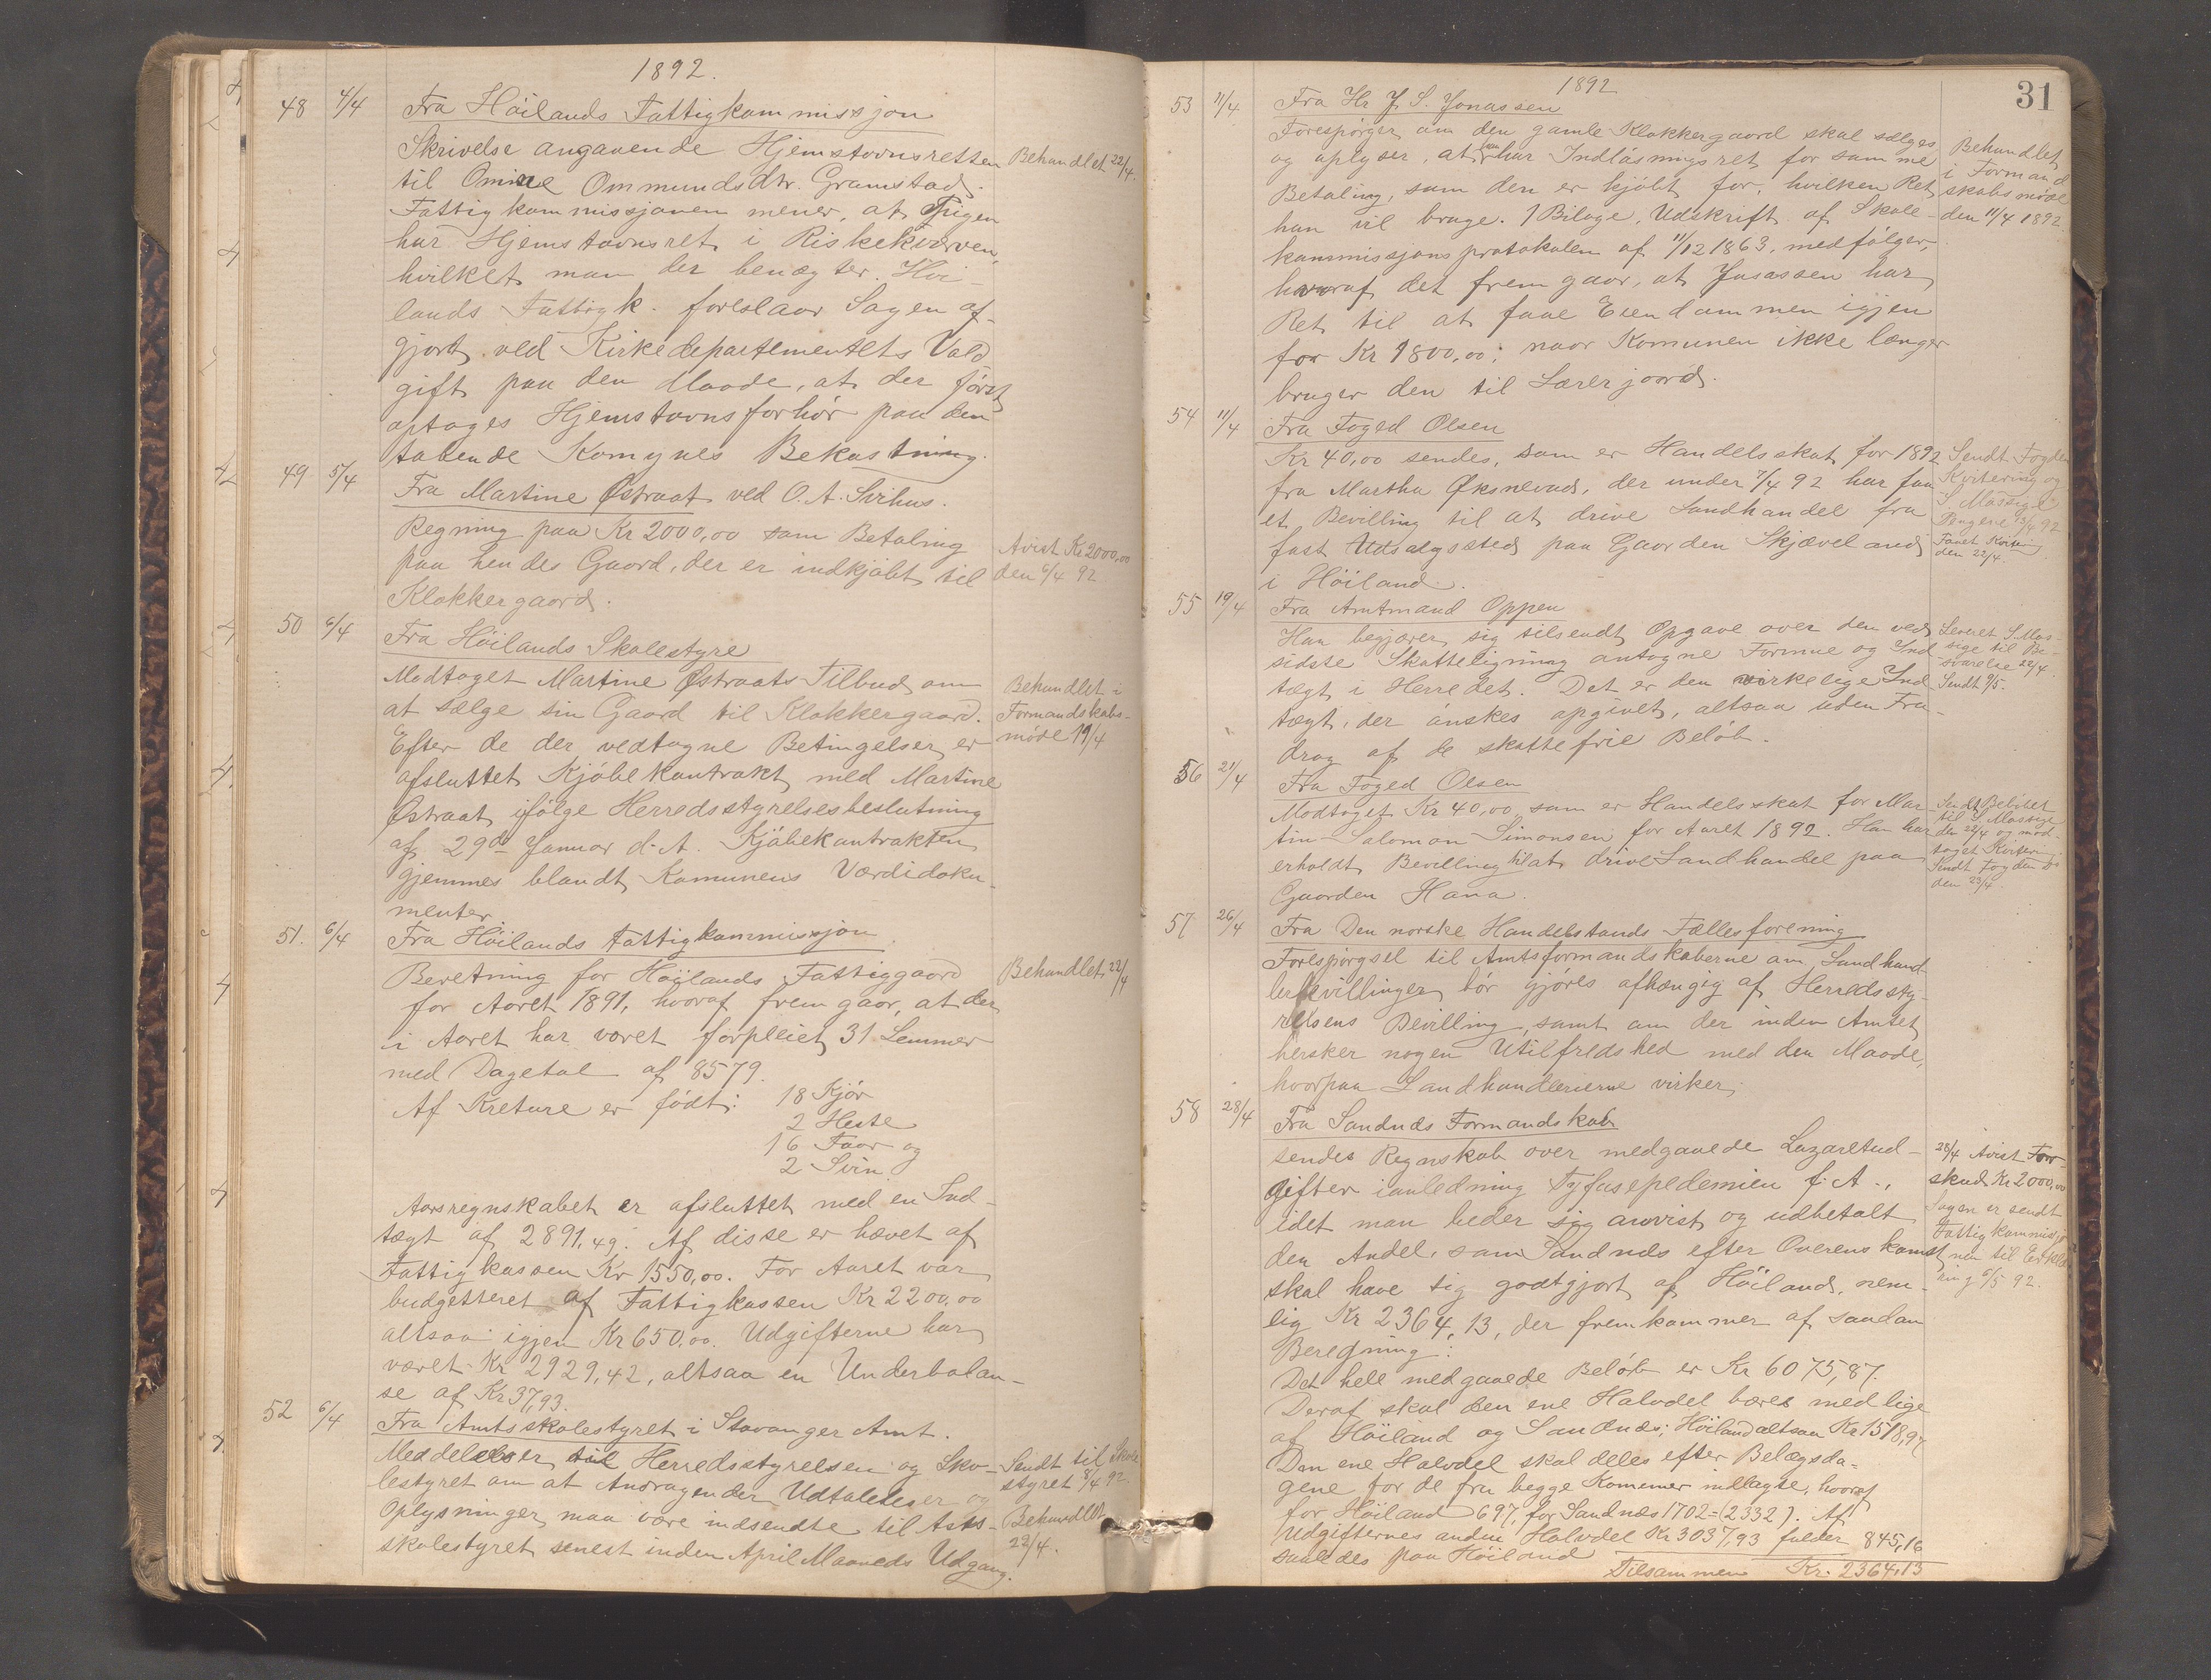 1892.
48 4/4 Fra Höilands Fattigkommissjon
Skrivelse angaaende Hjemstavnsretten Behandlet 22/4.
til Omine Ommundsdtr. Gramstad.
Fattigkommissjonen mener, at Pigen
har Hjemstavnsret i Riskekværven,
hvilket man der benægter. Höi-
lands Fattigk. foreslaar Sagen af-
gjort ved Kirkedepartementets Vold
gift paa den Maade, at der først
optages Hjemstavnsforhör paa den
tabende Komunes Bekostning.
49 5/4 Fra Martine Østraat ved O. A. Sirhus.
Regning paa Kr 2000,00 som Betaling
paa hendes Gaard, der er indkjøbt til
Klokkergaard.
Avist Kr 2000,00
den 6/4 92
50 6/4 Fra Höilands Skolestyre
Modtaget Martine Østraats Tilbud om
at sælge sin Gaard til Klokkergaard.
Efter de der vedtagne Betingelser er
afsluttet Kjöbekontrakt med Martine
Østraat ifölge Herredsstyrelsesbeslutning
af 29de Januar d. A. Kjöbekontrakten
gjemmes blandt Komunens Værdidoku-
menter.
Behandlet i
Formandskabs-
møde 19/4
51. 6/4 Fra Höilands Fattigkommissjon
Beretning for Höilands Fattiggaard Behandlet 22/4
for Aaret 1891, hvoraf fremgaar, at der
i Aaret har været forpleiet 31 Lemmer
med Dagetal af 8579.
Af Kreture er födt: 18 Kjör
2 Heste
16 Faar og
2 Svin
Aarsregnskabet er afsluttet med en Ind-
tægt af 2891,49. Af disse er hævet af
Fattigkassen Kr 1550,00. For Aaret var
budgetteret af Fattigkassen Kr 2200,00
altsaa igjen Kr 650,00. Udgifterne har
været Kr 2929,42, altsaa en Underbalan-
se af Kr 37,93.
52 6/4 Fra Amtsskolestyret i Stavanger Amt.
Meddelelser til Herredsstyrelsen og Sko-
lestyret om at Andragender Udtalelser og
Oplysninger maa være indsendte til Amts-
skolestyret senest inden April Maaneds Udgang.
Sendt til Skole
styret 8/4 92.
Behandlet
22/4.
31
1892
53 11/4 Fra Hr J. S. Jonassen
Forespörger om den gamle Klokkergaard skal sælges
og oplyser, at han har Indlösningsret for samme
Betaling, som den er kjöbt for, hvilken Ret
han vil bruge. 1 Bilage, Udskrift af Skole-
kommissjonsprotokolen af 11/12 1863, medfölger,
hvoraf det fremgaar, at Jonassen har
Ret til at faae Eiendommen igjen
for Kr 1800,00, naar Komunen ikke længer
bruger den til Lærerjaard.
Behandlet
i Formand
skabsmøde
den 11/4 1892
54 11/4 Fra Foged Olsen
Kr 40,00 sendes, som er Handelsskat for 1892
fra Martha Øksnevad, der under 7/4 92 har faaet
et Bevilling til at drive Landhandel fra
fast Udsalgssted paa Gaarden Skjæveland
i Höiland.
Sendt Fogden
Kvitering og
S. Massige
Pengene 13/4 92
Faaet Kvitering
den 22/4.
55 19/4 Fra Amtmand Oppen
Han begjærer sig tilsendt Opgave over den ved
sidste Skatteligning antagne Formue og Ind-
tægt i Herredet. Det er den virkelige Ind
tægt, der önskes opgivet, altsaa uden Fra-
drag af de skattefrie Belöb.
Leveret S. Mas-
sige til Be-
svarelse 22/4.
Sendt 9/5.
56 21/4 Fra Foged Olsen
Modtaget Kr 40,00, som er Handelsskat for Mar-
tin Salomon Simonsen for Aaret 1892. Han har
erholdt Bevilling til at drive Landhandel paa
Gaarden Hana.
Sendt Belöbet
til S. Massige
den 22/4 og mod-
taget Kvitering
Sendt Fogden
den 23/4.
57 26/4 Fra Den norske Handelstands Fællesforening
Forespörgsel til Amtsformandskaberne om Landhand-
lerbevillinger bör gjöres afhængig af Herredssty-
relsens Bevilling, samt om der inden Amtet
hersker nogen Utilfredshed med den Maade,
hvorpaa Landhandlerierne virker.
58 28/4 Fra Sandnes Formandskab
sendes Regnskab over medgaaede Lazaretud-
gifter ianledning Tyfusepedemien f. A.,
idet man beder sig anvist og udbetalt
den Andel, som Sandnes efter Overenskomst
skal have sig godtgjort af Höiland, nem-
lig Kr 2364,13, der fremkommer af saadan
Beregning:
28/4 Avist For-
skud Kr 2000,00
Sagen er sendt
Fattigkommissjo
nen til Erklæ
ring 6/5 92.
Det hele medgaaede Belöb er Kr 6075,87.
Deraf skal den ene Halvdel bæres med lige
af Höiland og Sandnes; Höiland altsaa Kr 1518,97
Den ene Halvdel skal deles efter Belægsda-
gene for de fra begge Komuner indlagte, hvoraf
for Höiland 697, for Sandnes 1702 = (2332). Af
Udgifternes anden Halvdel Kr 3037,93 falder 845,16
saaledes paa Höiland
Tilsammen Kr. 2364,13